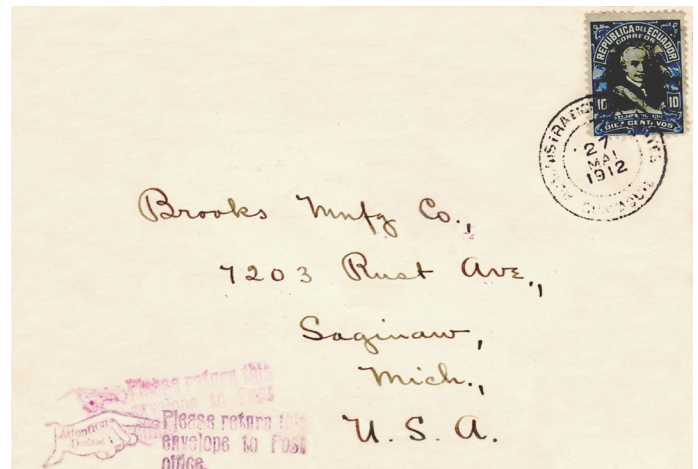 REPUBLICA DEL ECUADOR
CORREOS
10 10
DIEZ CENTAVOS
27
MAI
1912
Brooks Mnfg Co.,
7203 Rust Ave.,
Saginaw,
Mich.,
U. S. A.
Please return this
envelope to Post
Attention
Please return this
envelope to Post
office.